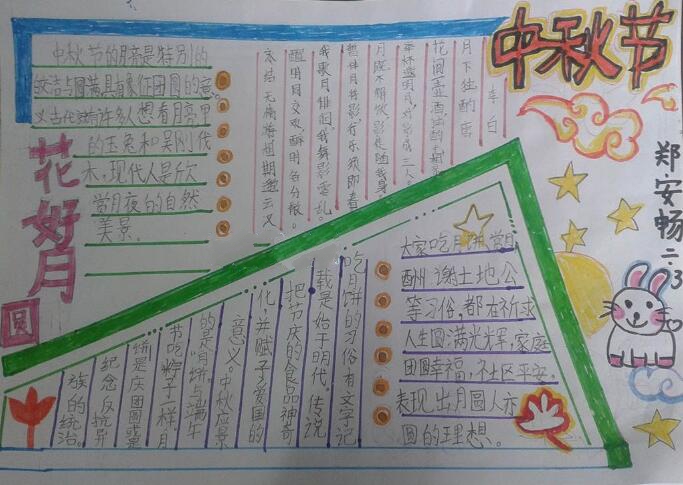 中秋节
中秋节的月亮是特别的
皎洁与圆满,具有象征团圆的意
义古代就有许多人想看月亮里
的玉兔和吴刚伐
木,现代人是欣
赏月夜的自然
美景。
花好月圆
月下独酌 唐
李白
花间一壶酒,独酌无相亲
举杯邀明月,对影成三人。
月既不解饮,影徒随我身。
暂伴月将影,行乐须即春
我歌月徘徊,我舞影零乱。
醒时同交欢,醉时各分散。
永结无情游,相期邈云汉
郑安畅二.3
吃月饼的习俗有文字记
我是始于明代。传说
把节庆的食品神奇
化,并赋予了爱国的
意义。中秋应景
的是月饼,与端午
节吃粽子一样,月
饼是庆团圆或
纪念反抗异
族的统治。
大家吃月饼、赏月
酬谢土地公
等习俗,都在祈求
人生圆满光辉,家庭
团圆幸福,社区平安,
表现出月圆人亦
圆的理想。